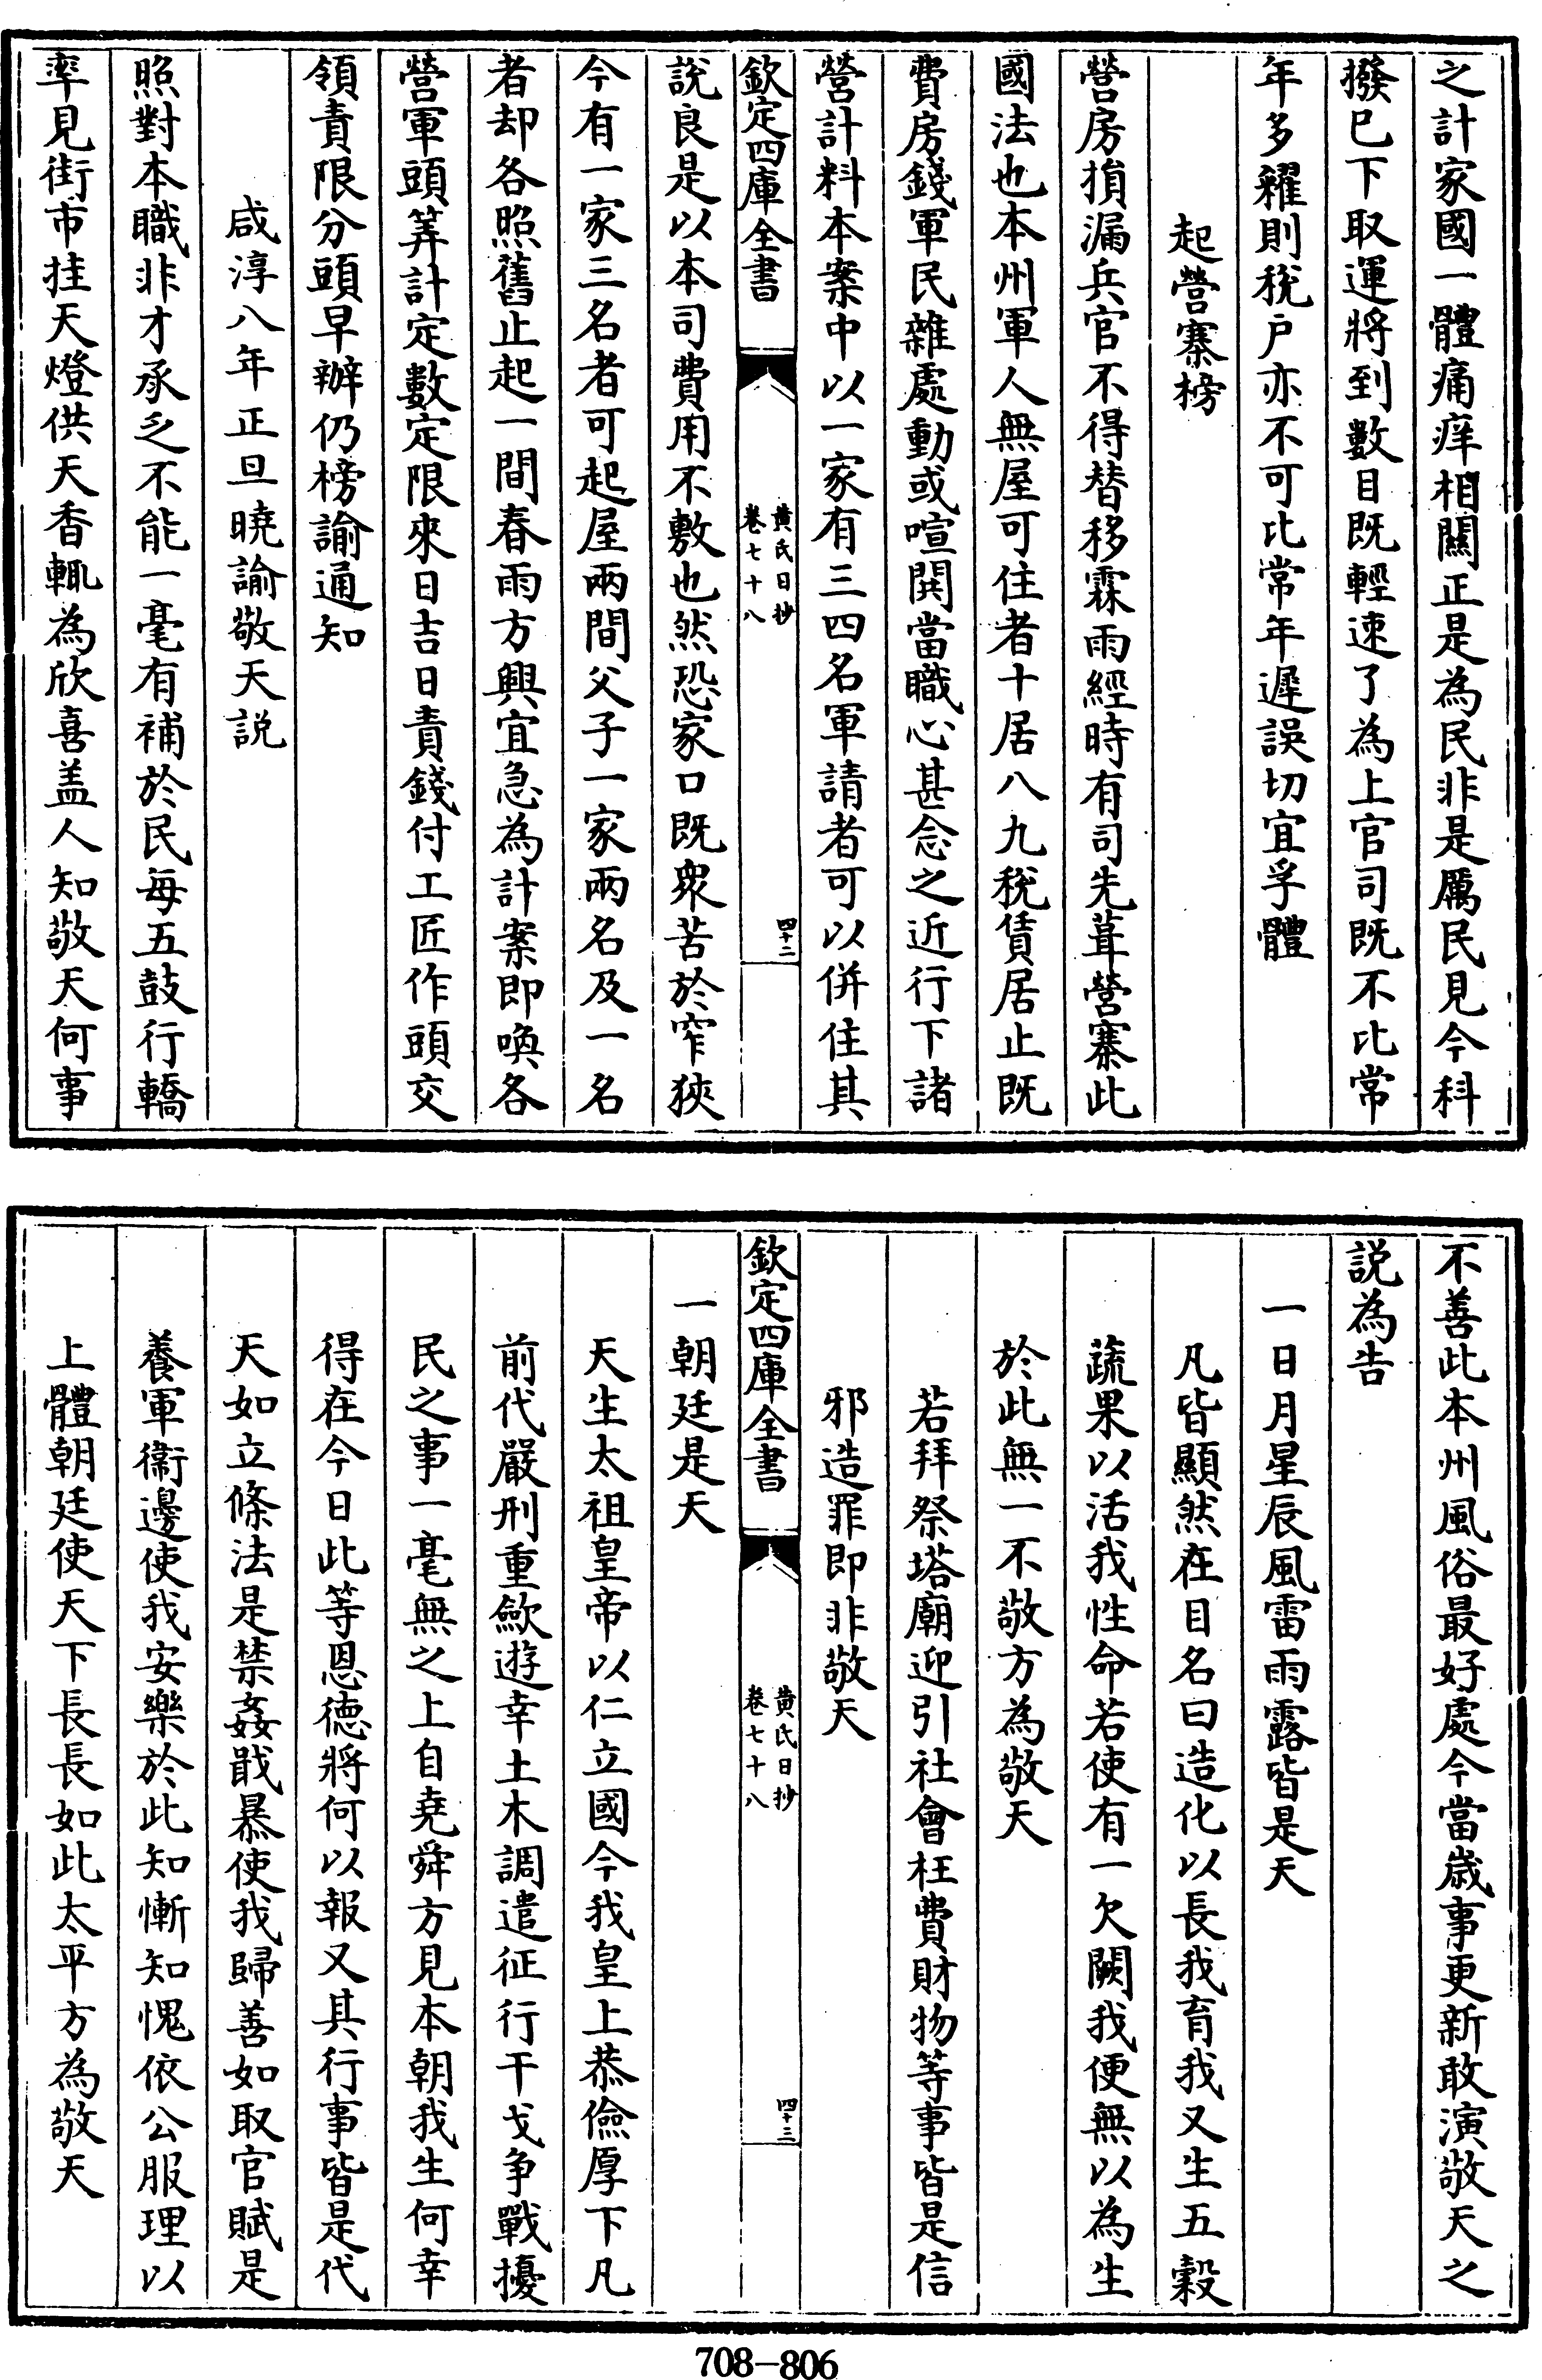 之計家國一體痛痒相關正是為民非是厲民見今科
撥已下取運將到數目既輕速了為上官司既不比常
年多糴則稅户亦不可比常年遲誤切宜孚體
起營寨榜
營房損漏兵官不得替移霖雨經時有司先葺營寨此
國法也本州軍人無屋可住者十居八九稅賃居止既
費房錢軍民雜處動或喧鬨當職心甚念之近行下諸
營計料本案中以一家有三四名軍請者可以併住其
欽定四庫全書
黄氏日抄
卷七十八
四十二
說良是以本司費用不敷也然恐家口既衆苦於窄狹
今有一家三名者可起屋兩間父子一家兩名及一名
者却各照舊止起一間春雨方興宜急為計案即喚各
營軍頭筭計定數定限來日吉日責錢付工匠作頭交
領責限分頭早辦仍榜諭通知
咸淳八年正旦曉諭敬天説
照對本職非才承乏不能一毫有補於民每五鼓行轎
率見街市挂天燈供天香輒為欣喜盖人知敬天何事
不善此本州風俗最好處今當歲事更新敢演敬天之
説為告
一日月星辰風雷雨露皆是天
凡皆顯然在目名曰造化以長我育我又生五穀
蔬果以活我性命若使有一欠闕我便無以為生
於此無一不敬方為敬天
若拜祭塔廟迎引社會枉費財物等事皆是信
邪造罪即非敬天
欽定四庫全書
黄氏日抄
卷七十八
四十三
一朝廷是天
天生太祖皇帝以仁立國今我皇上恭儉厚下凡
前代嚴刑重歛遊幸土木調遣征行干戈争戰擾
民之事一毫無之上自堯舜方見本朝我生何幸
得在今日此等恩德將何以報又其行事皆是代
天如立條法是禁姦戢暴使我歸善如取官賦是
養軍衞邊使我安樂於此知慚知愧依公服理以
上體朝廷使天下長長如此太平方為敬天
708-806